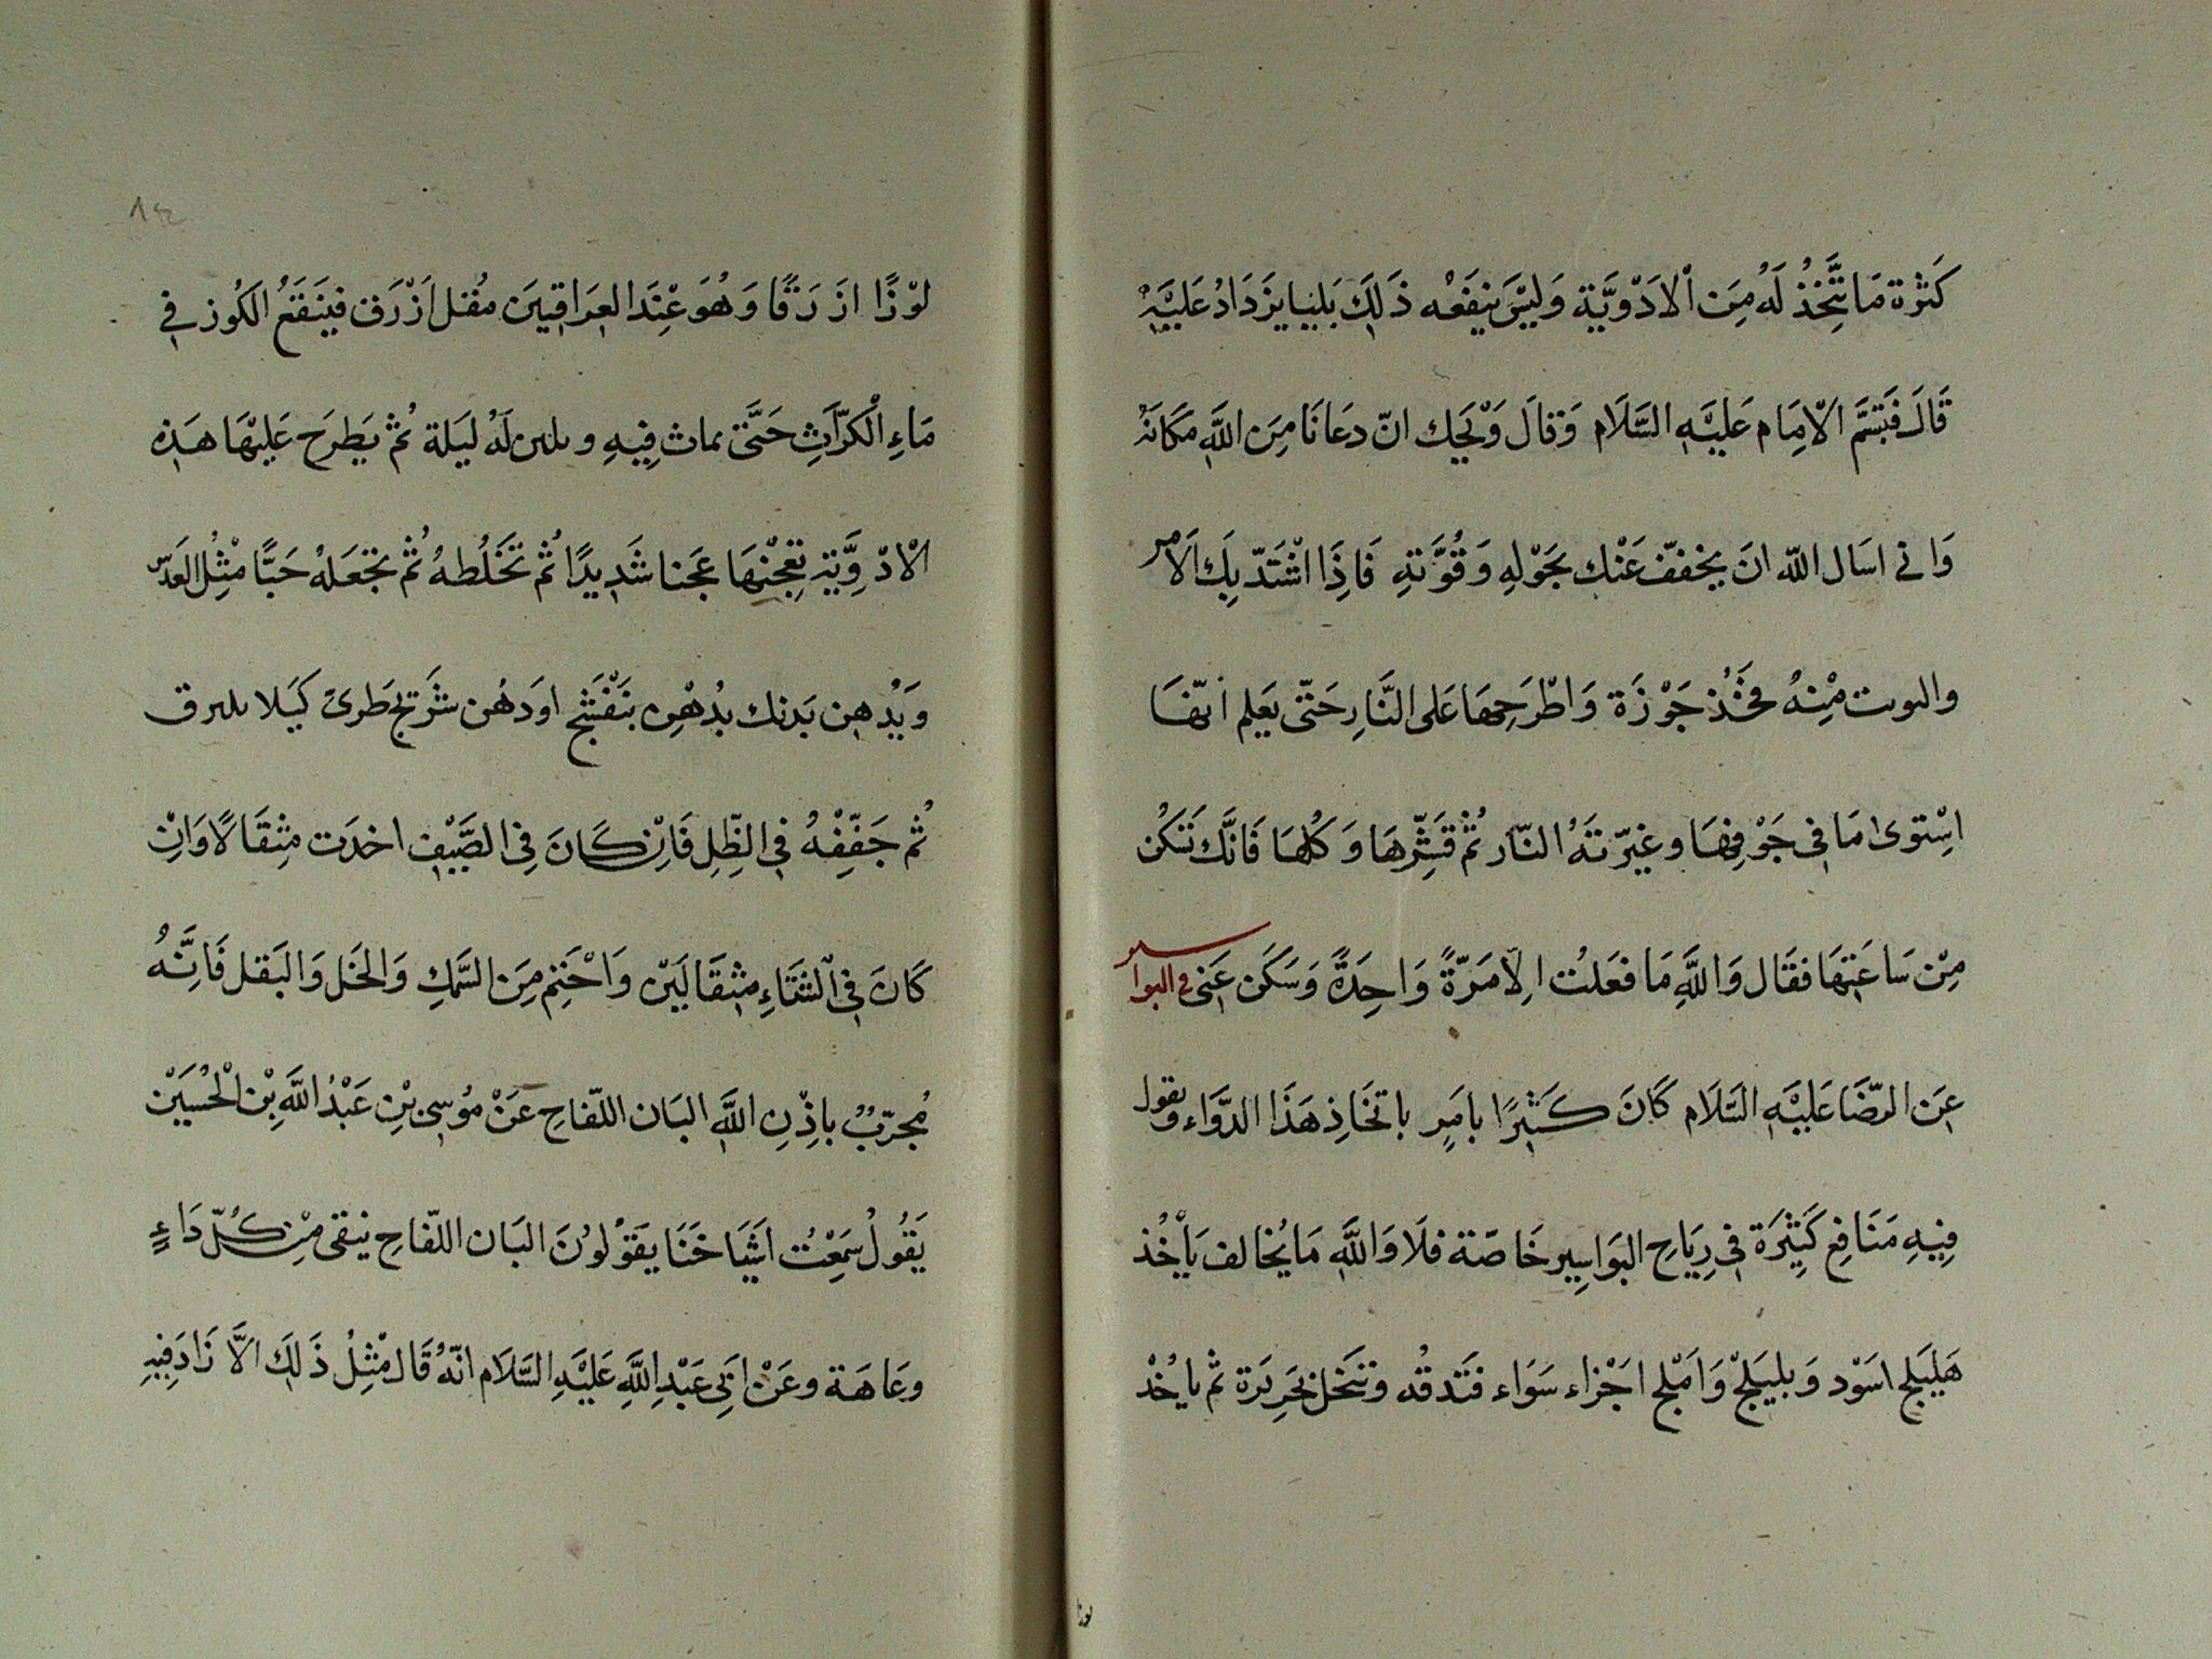 كَثرة مَا تتَّخِذُ لَهُ مِنَ الْادَوْيَّة وَليْسَ ينِفَعْه ذَلِكَ بَل يزَدَادُ عَليَّهْ
قَالَ فَتبَسَّمَ الاْمِام عَليَّهِ السَّلَام وَقالَ وَيْحَك انّ دعَانَا مِنَ اللَّهِ مَكَانَهْ
وَانى اسَال اللّه انَ يخففّ عَنْك بحَوْلِهِ وَقُوَّتهِ فَاذِا اشْتَدّ بِكَ الَامْر
والتويت مْنِهُ فخَُذ جَوْزَة وَاطْرَحِهَا عَلى النَّارِ حَتّى يَعَلم انهّا
اسِْتوى مَا فى جَوْفِهَا وغيرّتهُ النّار ثُمّ قَشِّرهَا وَكُلهَا فَانَّك تسَكُن
مِنْ سَاعَتِهَا فقَال وَاللَّهِ مَا فعَلتُ الِاّ مَرّةً وَاحِدَةً وَسَكَن عَنِى فى البواسير
عِن الرّضَا عَليَّهِ السَّلَام كَانَ كَثيرًا بامَرٍ باتخَاذِ هَذَا الدَّوَاء ويقول
فِيهِ مَنَافِع كَثِيَرة فىِ رِيَاحِ البَوَاسِير خَاصّة فلَا وَاللَّهِ مَا يُخالف يَأخُذ
هَليَلج اسَوْد وَبليَلج وَامْلج اجْزاء سَوَاء فَتدقُه وتنَخل بحَرِيَرة ثم يأخُذْ
لوْزًا ازَرَقًا وَهُوَ عْندَ العِرَاقيِينَ مُقل اَزْرَق فيَنقَعُ الكُوز فى
مَاءِ الْكَرّاثِ حَتىَّ يماث فِيهِ ويلين لَهُ ليَلة ثُمّ يَطرَح عَليْهَا هَذِه
الْادْوِيَّة تعِجْنهَا عَجنا شَدِيدًا ثُمّ تَخَلُطهُ ثُمّ تجْعَلهُ حَبًّا مْثِل العَدسّ
وَيُدهِن يَدنك بدُهْنِ بنَفْسَج اوَدهُن شَيْرَج طَرىً كَيَلا يلىرق
ثُم جَفّفِْهُ فىِ الظِّلِ فَانْ كَانَ فىِ الصَّيْفِ اخدَت مِثْقَالًا وَانْ
كَانَ فىِ الشتَاءِ مِثقَاليَنْ وَاحْتِم مِنَ السَّمَكِ وَالخَل وَالبَقل فَانَّهُ
مُجرّبٌ باذِْنِ اللَّهِ البَان اللّفاحِ عَنْ مُوسِى بْنِ عَبْدُ اللَّهِ بْن الْحُسَيْن
يَقُولُ سَمِعْتُ اشَيَاخَنَا يقَوُلوُنَ البَان اللّفاحِ ينقى مِنْ كُلّ دَاءٍ
وعَاهَة وعَنْ ابَىِ عَبْدِ اللَّهِ عَليَْهِ السَّلَام انّهُ قَالَ مثْلِ ذَلِكَ الَّا زَادَ فِيهِ
لوزا